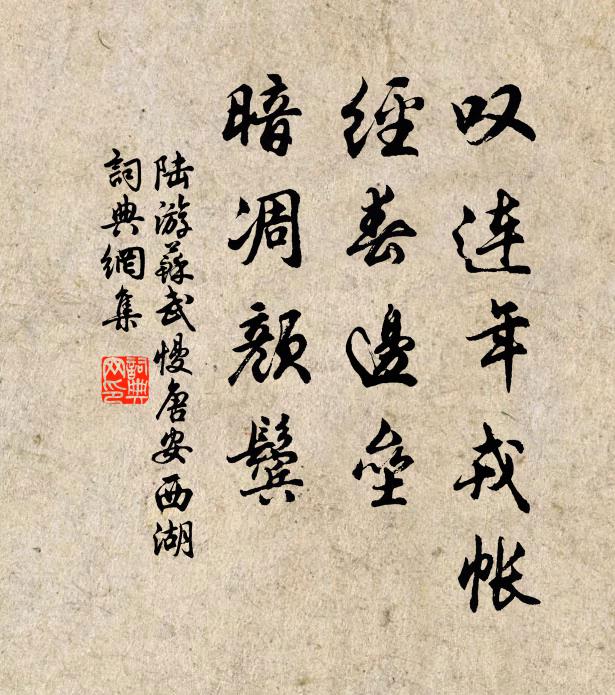 叹连年戎帐
經春邊壘
暗凋颜鬓
陆游蘇武慢唐安西湖
詞典網集
詞典網印